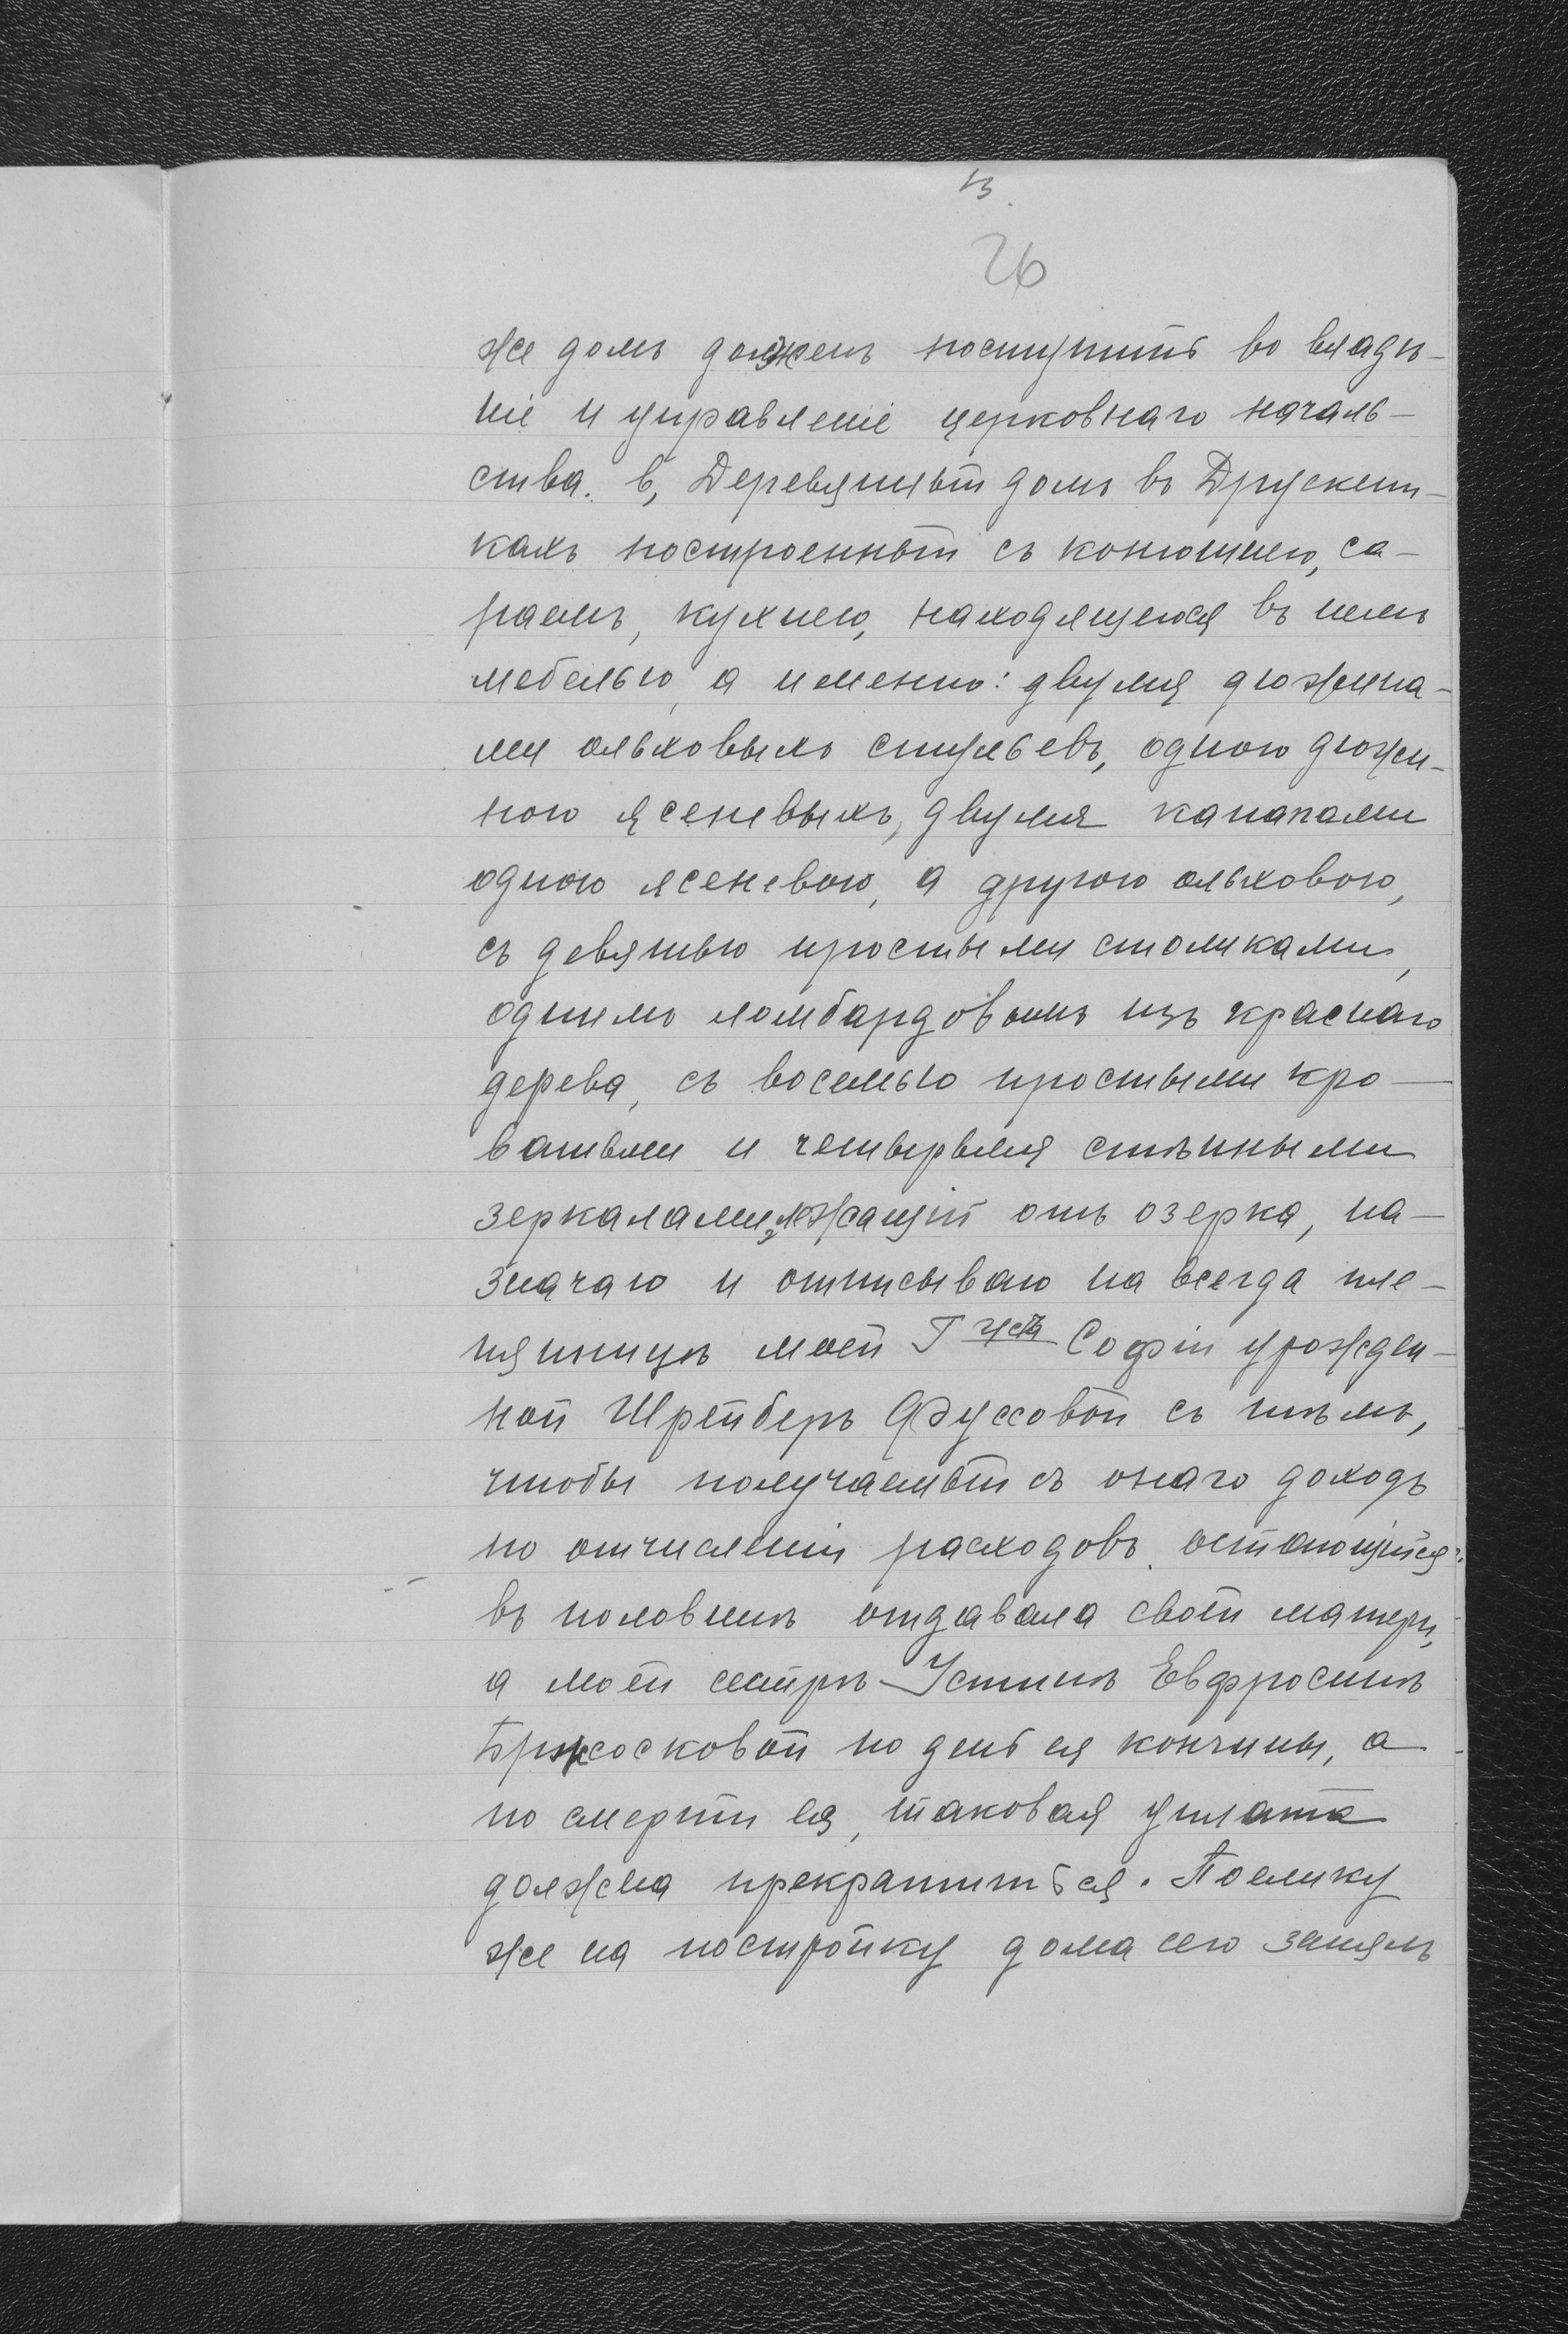 13.
26
же домъ долженъ поступить во владѣ-
ніе и управленіе церковнаго началь-
ства. в, Деревянный домъ въ Друскени-
кахъ построенный съ конюшнею, са-
раемъ, кухнею, находящеюся въ немъ
мебелью, а именно: двумя дюжина-
ми ольховыхъ стульевъ, одною дюжи-
ною ясеневыхъ, двумя канапами
одною ясеневою, а другою ольховою,
съ девятью простыми столиками,
однимъ ломбардовымъ изъ краснаго
дерева, съ восемью простыми кро-
ватьми и четырьмя стѣнными
зеркалами, лежащій отъ озерка, на-
значаю и отписываю на всегда пле-
мянницѣ моей Софіи урожден-
ной Шрейберъ Фуссовой съ тѣмъ,
чтобы получаемый съ онаго доходъ
по отчисленіи расходовъ остающійся
въ половинѣ отдавала своей матери,
а моей сестрѣ Устинѣ Евфросинѣ
Бржосковой по день ея кончины, а
по смерти ея, таковая уплата
должна прекратиться. Поелику
же на постройку дома сего занялъ